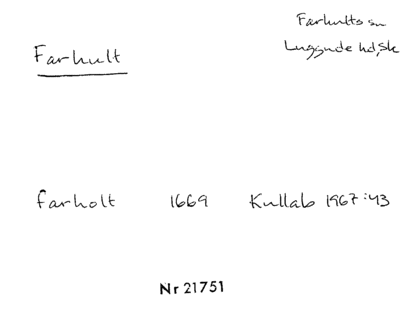 Farhult
Farhults sn
Luggude hd, Sk
farholt 1669 Kullab 1967:43
Nr 21751